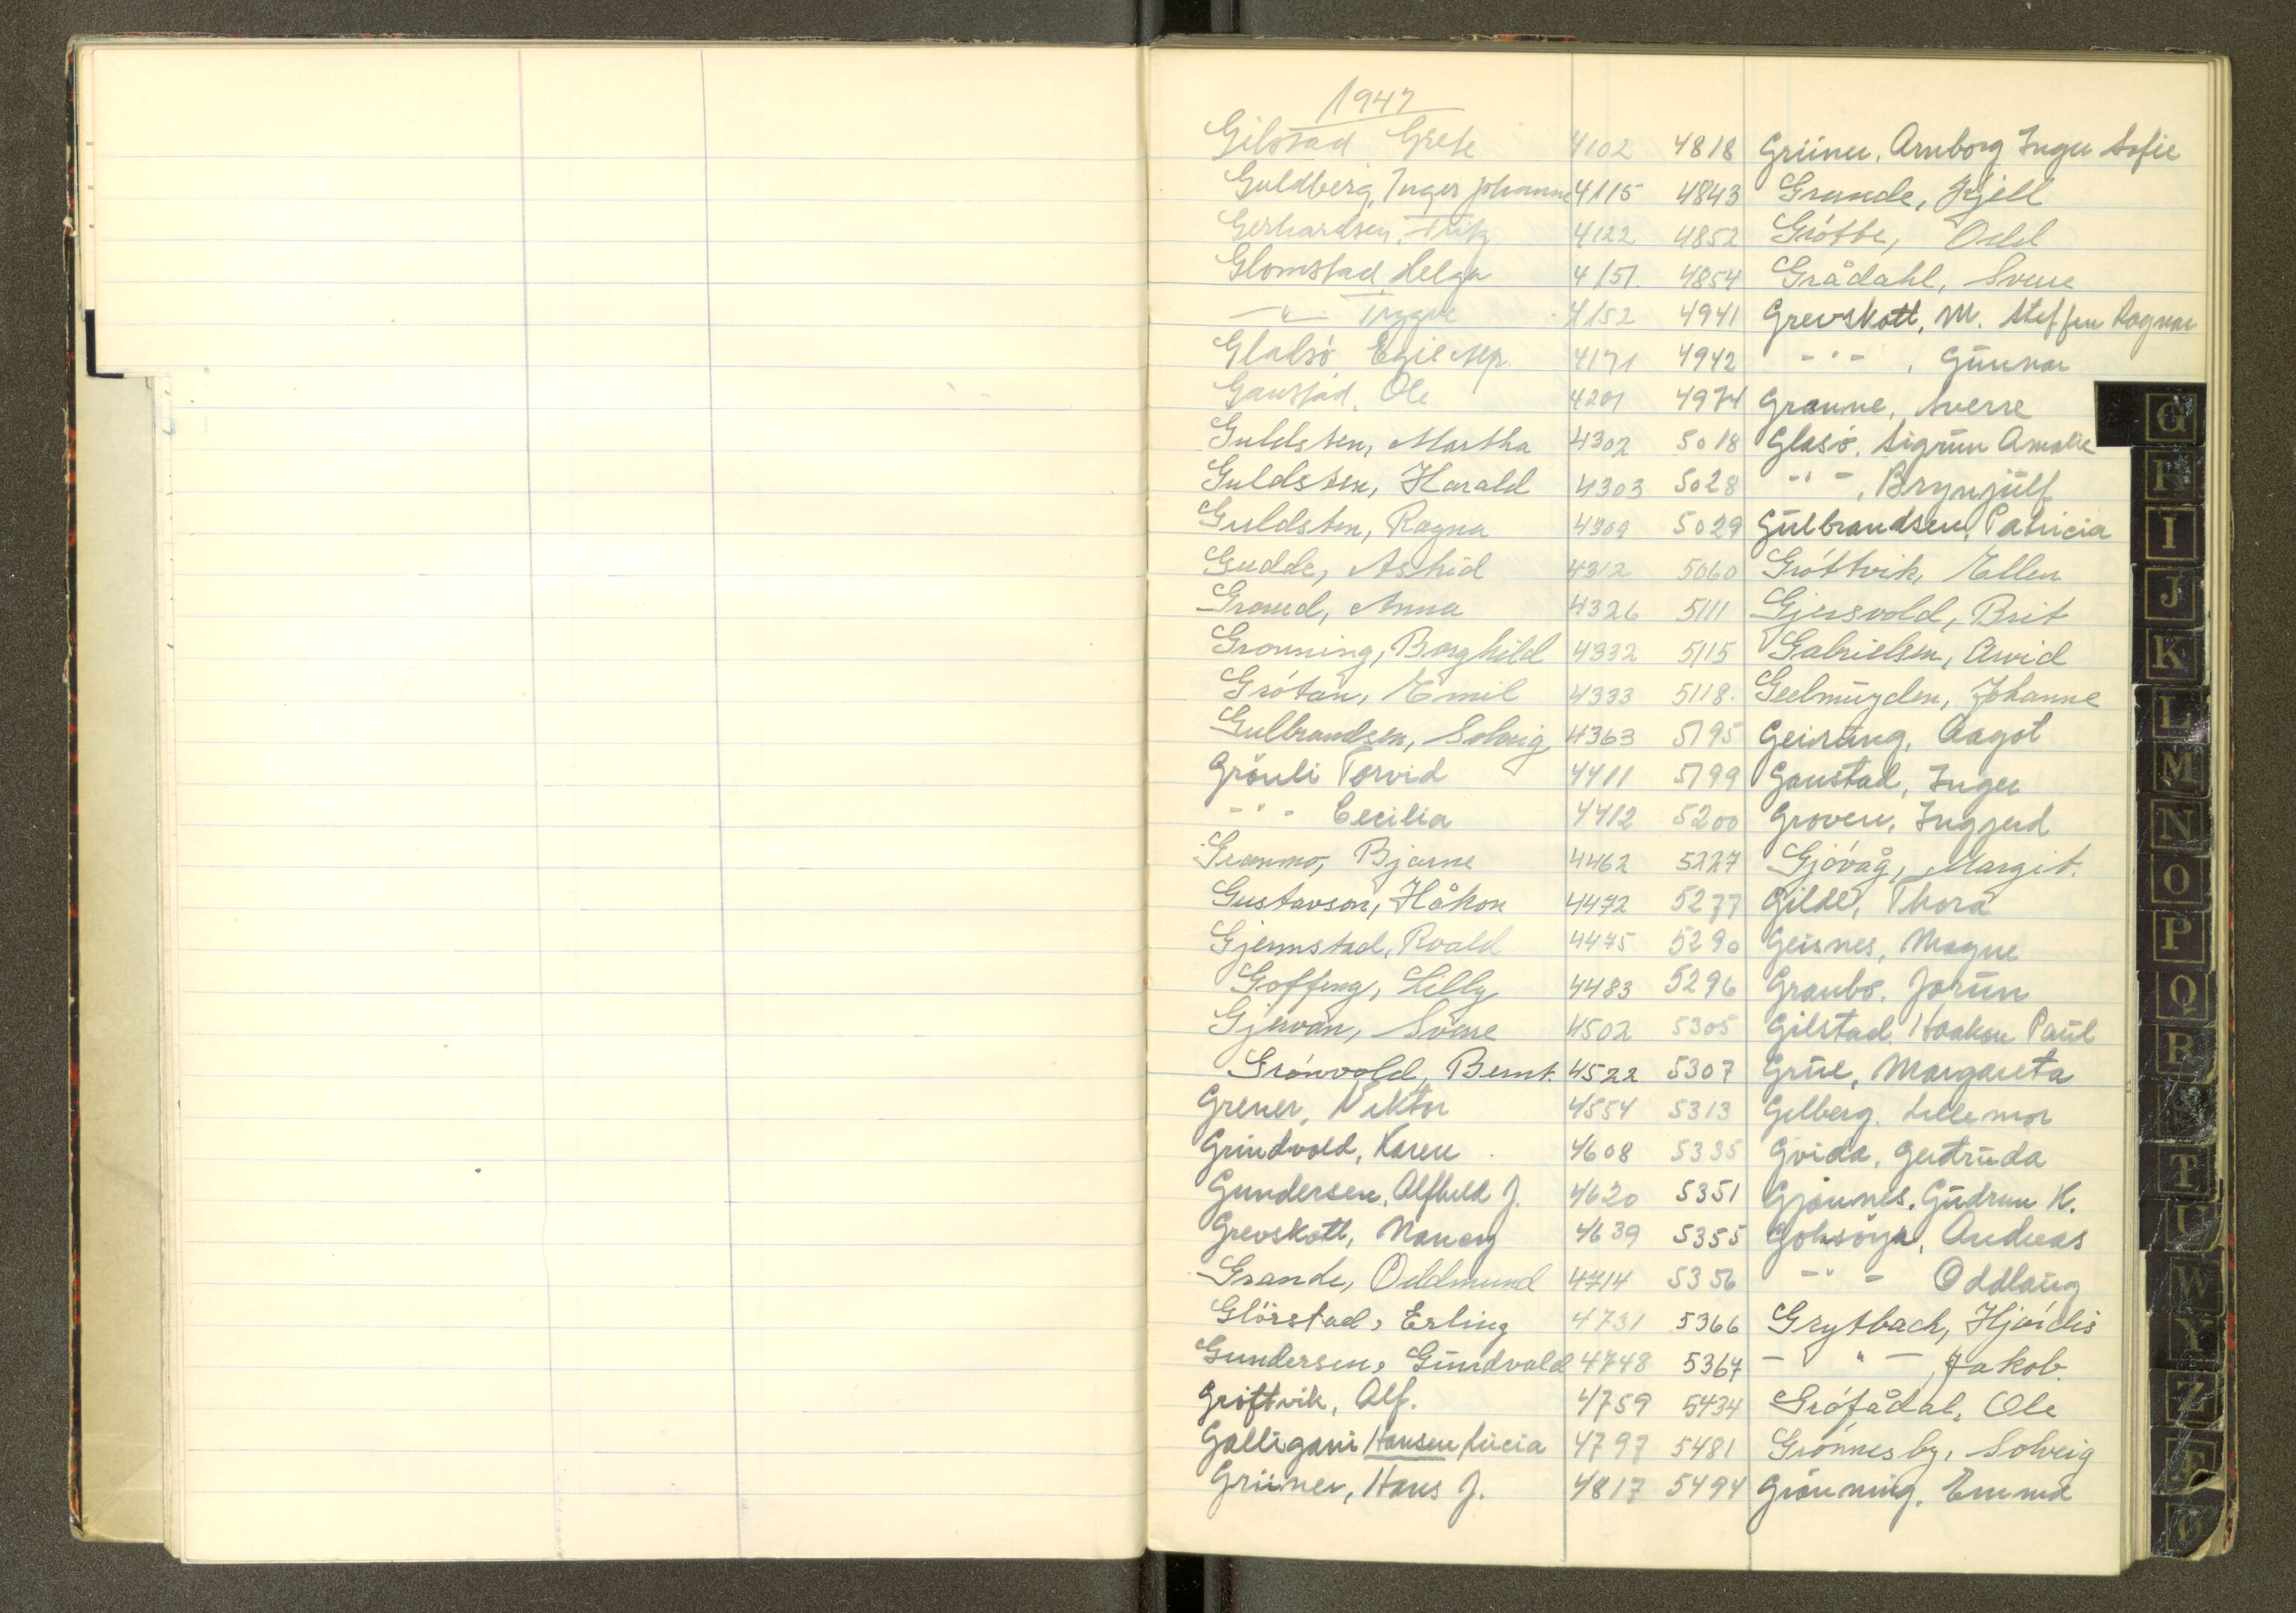 1947
Gilstad Grete 4102 4818 Grüner, Arnborg Inger Sofie
Guldberg, Inger Johanne 4115 4843 Grande, Kjell
Gerhardsen, Fritz 4122 4852 Grötte, Odd
Glomstad, Helga 4151 4854 Grådahl, Svene
-"- Trygve 4152 4941 Grevskott, M. Steffen Ragnar
Glasö Egil 4171 4942 -"-, Gunnar
Gaustad, Ole 4201 4974 Granne, Sverre
Guldsten, Martha 4302 5018 Glasö, Sigrun Amalie
Guldsten, Harald 4303 5028 -"-, Brynjulf
Guldsten, Ragna 4309 5029 Gulbrandsen, Patricia
Gudde, Astrid 4312 5060 Gröttvik, Ellen
Graned, Anna 4326 5111 Gjersvold, Brit
Gronning, Borghild 4332 5115 Gabrielsen, Arvid
Grötan, Emil 4333 5118 Geelmuyden, Johanne
Gulbrandsen, Solveig 4363 5195 Geirang, Aagot
Grönli Torvid 4411 5199 Gaustad, Inger
-"- Cecilia 4412 5200 Groven, Inggerd
Granmo, Bjarne 4462 5227 Gjövåg, Margit.
Gustavson, Håkon 4472 5277 Gilde, Thora
Gjermstad, Roald 4475 5290 Geisnes, Magne
Goffeng, Lilly 4483 5296 Granbo, Jorun
Gjervan, Svere 4502 5305 Gilstad, Haakon Paul
Grönvold, Bernt. 4522 5307 Grue, Margareta
Grener, Viktor 4554 5313 Gelberg, Lillemor
Grindvold, Karen 4608 5335 Gvida, Gertruda
Gundersen, Alfhild J. 4620 5351 Gjönnes, Gudrun K.
Grevskott, Nancy 4639 5355 Gohsöya, Andreas
Grande, Oddmund 4714 5356 -"- Oddlaug
Glörstad, Erling 4731 5366 Grytbach, Hjördis
Gundersen, Gundvald 4748 5367 -"-, Jakob.
Gröftvik, Alf. 4759 5434 Gröfådal, Ole
Galligani Hansen, Lucia 4797 5481 Grönnesby, Solveig
Grüner, Hans J. 4817 5494 Grönning, Emma
G
H
I
J
K
L
M
N
O
P
Q
R
S
T
U
W
Y
Z
Æ
Ø